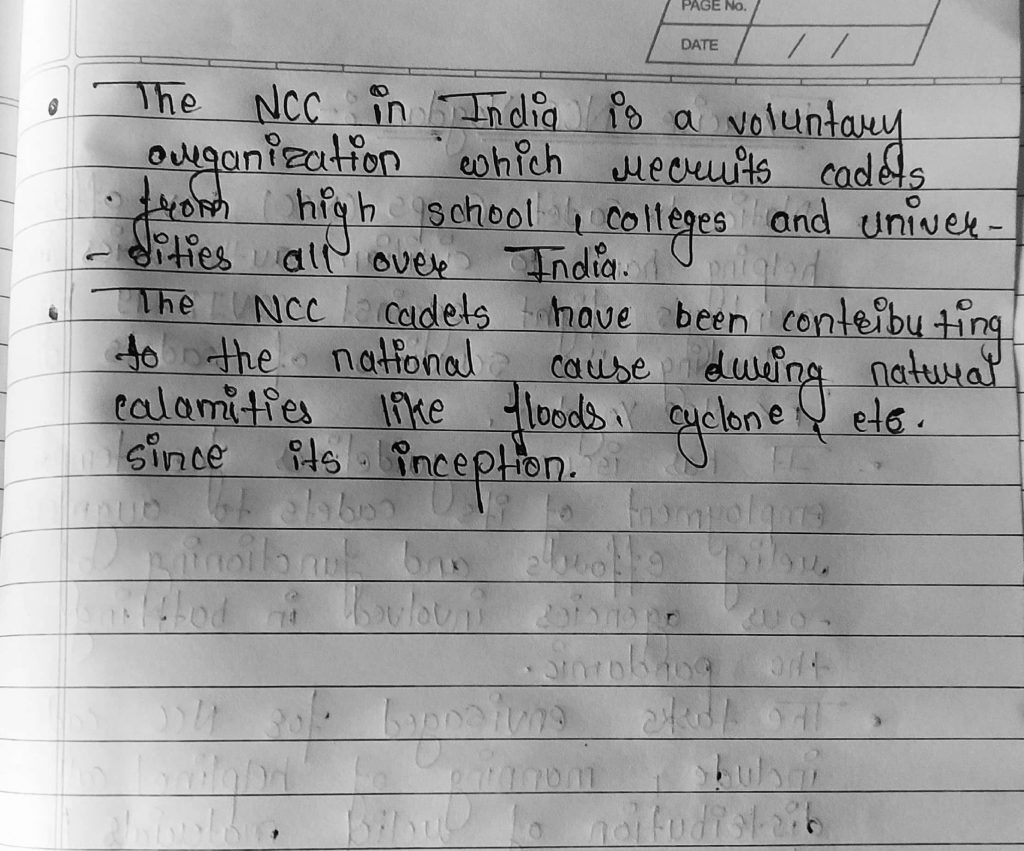 PAGE No.
DATE / /
• The NCC in India is a voluntary
organization which recruits cadets
from high school, colleges and univer-
- sities all over India.
• The NCC cadets have been contributing
to the national cause during natural
calamities like floods, cyclone, etc.
since its inception.